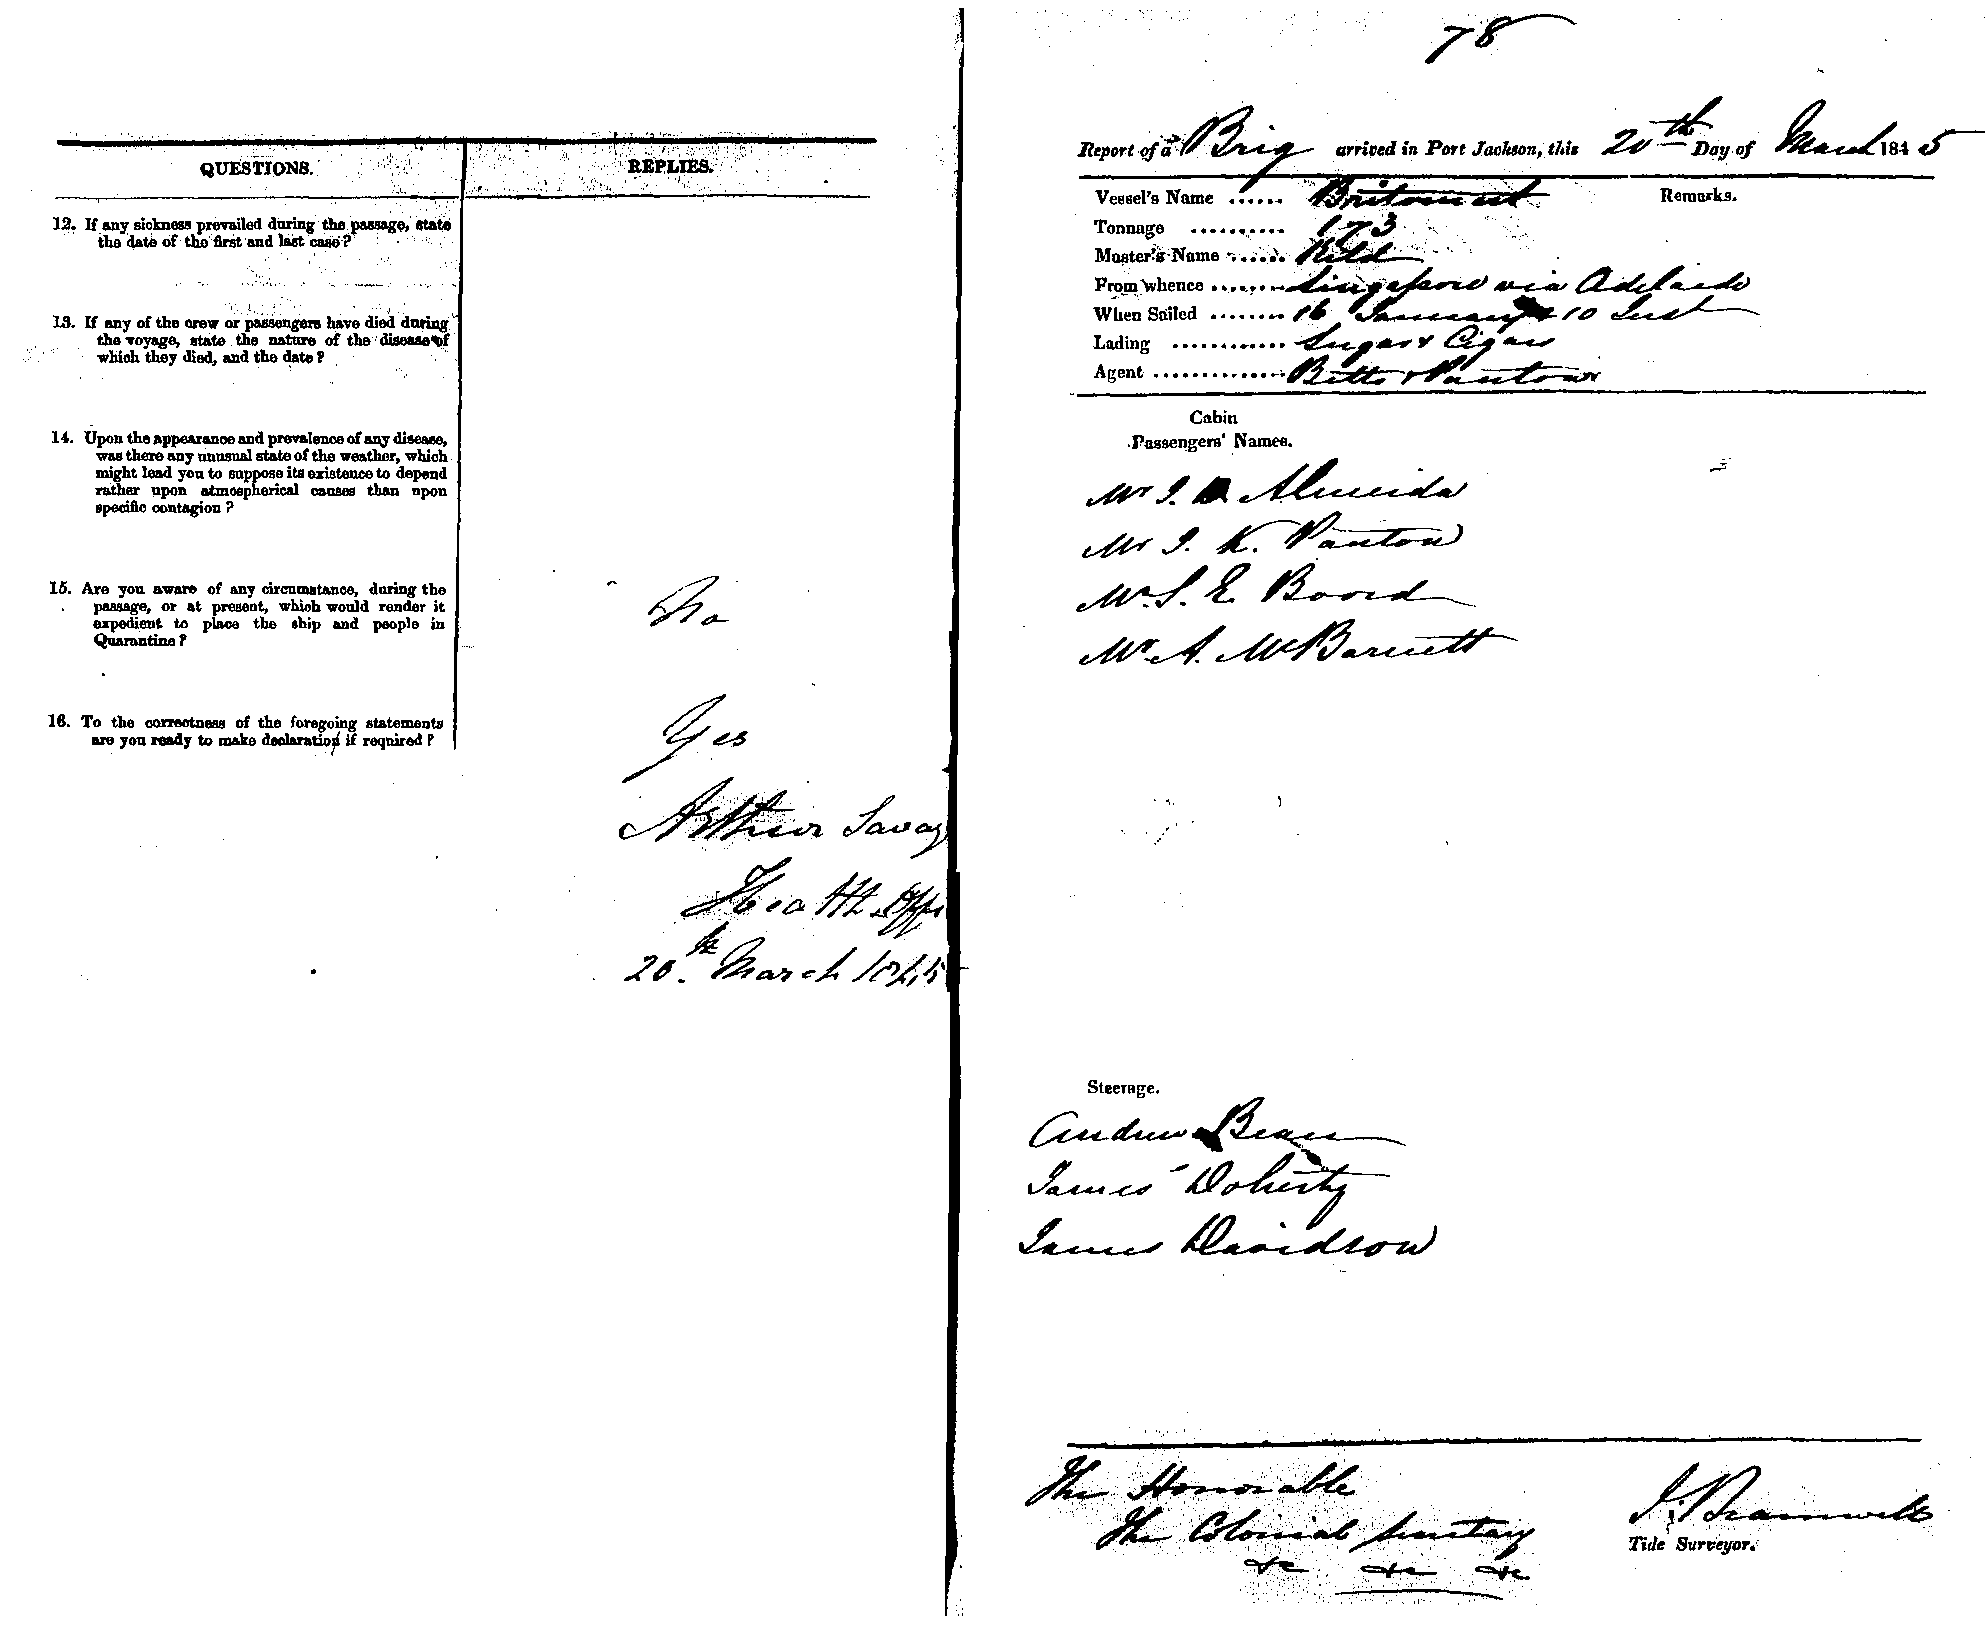 QUESTIONS. REPLIES.
12. If any sickness prevailed during the passage, state
the date of the first and last case?
13. If any of the crew or passengers have died during
the voyage, state the nature of the disease of
which they died, and the date?
14. Upon the appearance and prevalence of any disease,
was there any unusual state of the weather, which
might lead you to suppose its existence to depend
rather upon atmospherical causes than upon
specific contagion?
15. Are you aware of any circumstance, during the
passage, or at present, which would render it
expedient to place the ship and people in
Quarantine?
No
16. To the correctness of the foregoing statements
are you ready to make declaration if required?
Yes
Arthur Savag
Health Offr
20th March 1845
78
Report of a Brig arrived in Port Jackson, this 20th Day of March 1845
Vessel's Name ...... Britomart Remarks.
Tonnage .......... 173
Master's Name ......
From whence ....... Singapore via Adelaide
When Sailed ........ 16 January & 10 Inst
Lading ............ Sugar & Cigars
Agent ............. Betts & Panton
Cabin
Passengers' Names.
Mr J. D Almeida
Mr J. K. Panton
Mr. S. E. Boord
Mr. A. McBarnett
Steerage.
Andrew Bean
James Doherty
James Davidson
The Honorable
The Colonial Secretary
&c &c &c
J. Bramwell
Tide Surveyor.